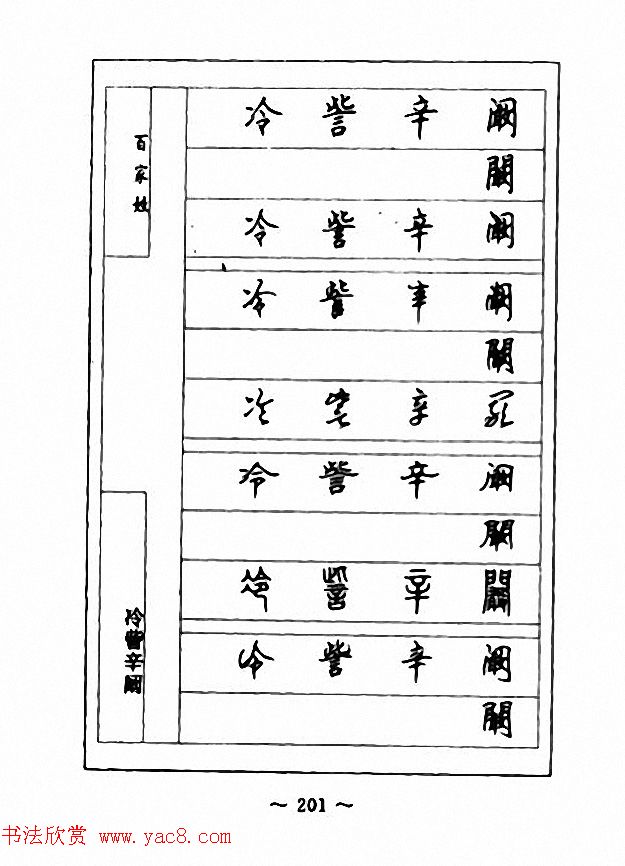 百家姓
冷訾辛阚
冷訾辛阚
闞
冷訾辛阚
冷訾辛阚
闞
冷訾辛阚
冷訾辛阚
闞
冷訾辛闞
冷訾辛阚
闞
～ 201 ～
书法欣赏 www.yac8.com